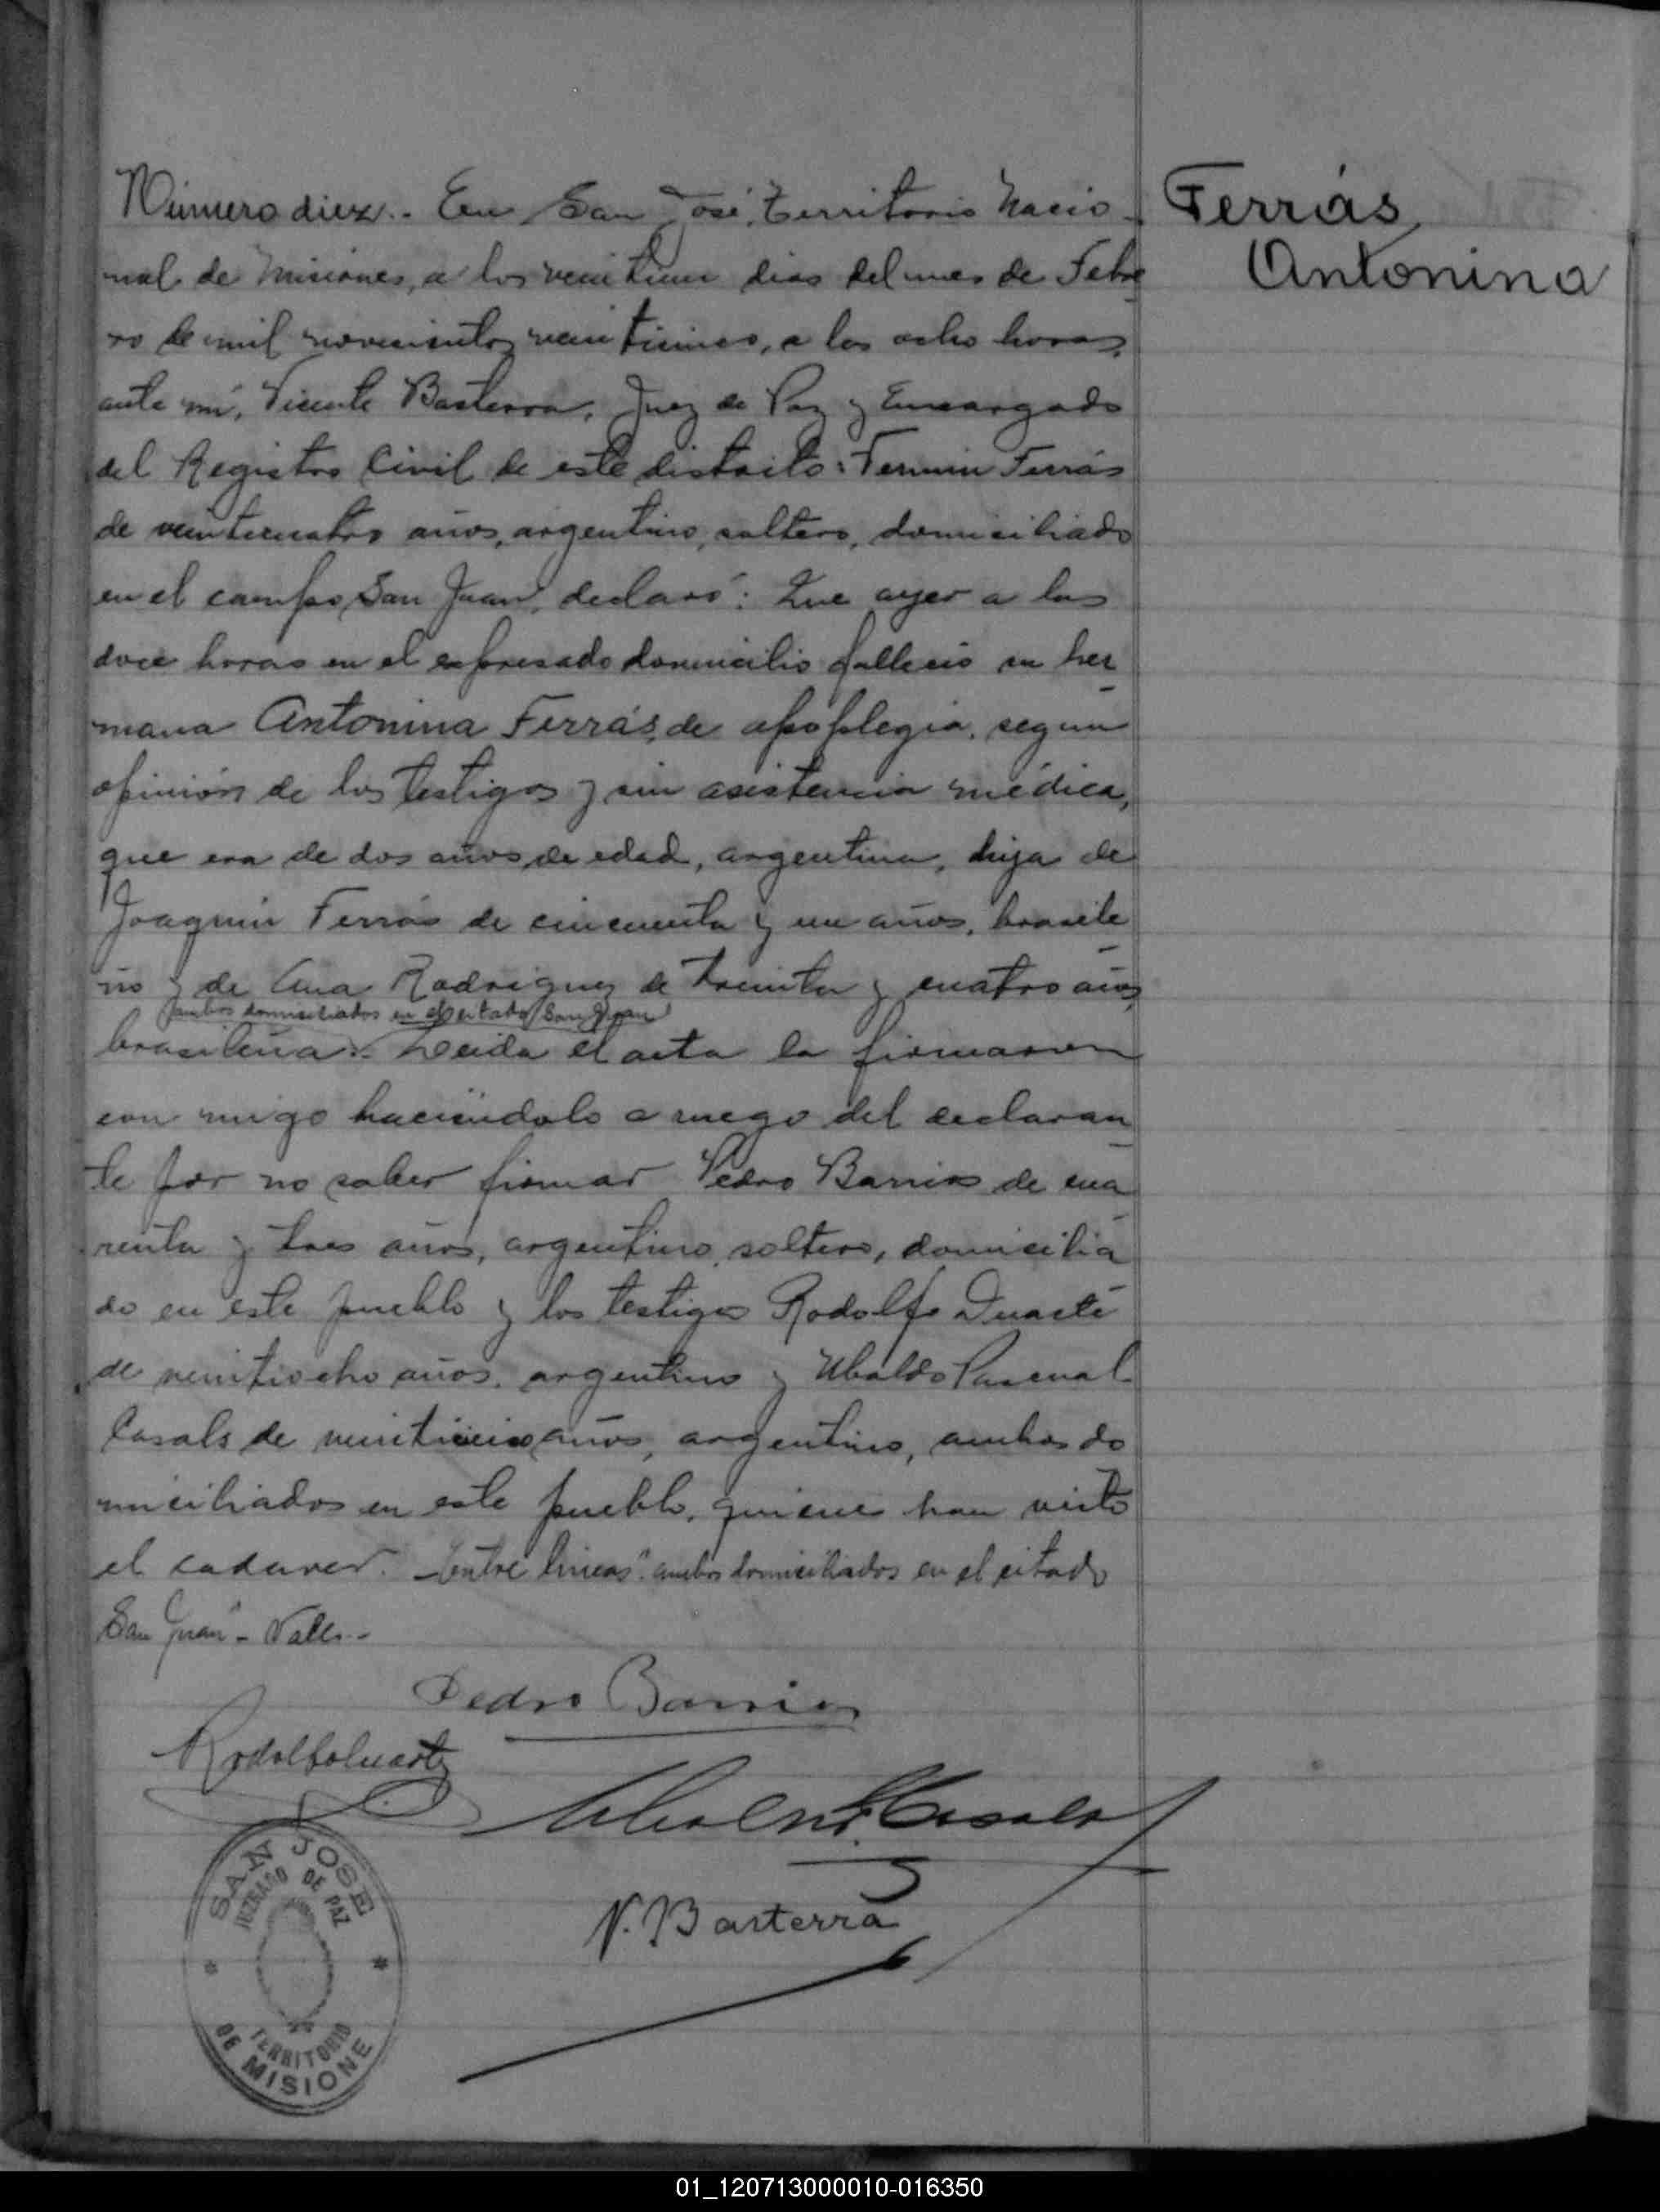 Número diez.. En San José, Territorio Nacio-
nal de Misiones, a los veintiun dias del mes de Febre
ro de mil novecientos veinticinco, a las ocho horas,
ante mí, Vicente Basterra, Juez de Paz y Encargado
del Registro Civil de este distrito: Fermin Ferrás
de veinticuatro años, argentino, soltero, domiciliado
en el campo San Juan, declaró: Que ayer a las
doce horas en el expresado domicilio falleció su her
mana Antonina Ferrás, de apoplegia, segun
opinión de los testigos y sin asistencia médica,
que era de dos años de edad, argentina, hija de
Joaquin Ferrás de cincuenta y un años, brasile
ño y de Ana Rodriguez de treinta y cuatro años,
ambos domiciliados en el citado San Juan
brasileña.- Leida el acta la firmaron
con migo haciendolo a ruego del declaran
te por no saber firmar Pedro Barrios de cua
renta y tres años, argentino, soltero, domicilia
do en este pueblo y los testigos Rodolfo Duarte
de veintiocho años, argentino y Ubaldo Pascual
Casals de años, argentino, ambos do
miciliados en este pueblo, quienes han visto
el cadaver. -Entre lineas "ambos domiciliados en el citado
San Juan"- Vale.-
Pedro Barrios
Rodolfo Duarte
Ubaldo P. Casals
V. Basterra
Ferrás,
Antonina
SAN JOSE
JUZGADO DE PAZ
TERRITORIO
DE MISIONE
01_120713000010-016350